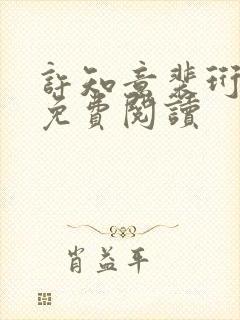 許知意裴珩
免費閱讀
肖益平